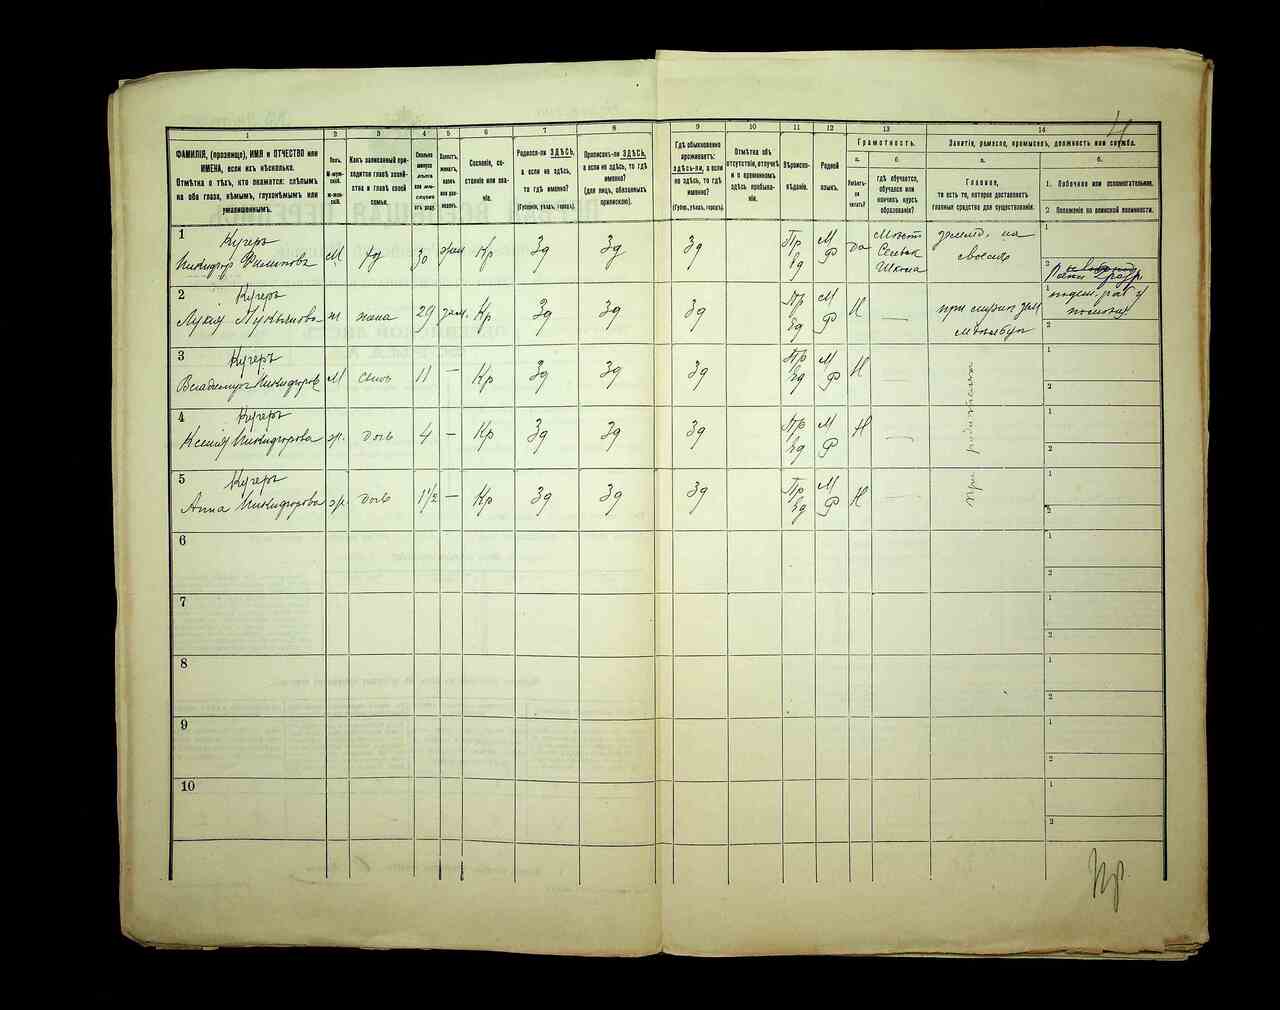 4
1 2 3 4 5 6 7 8 9 10 11 12 13 14
ФАМИЛІЯ, (прозвище), ИМЯ и ОТЧЕСТВО или
ИМЕНА, если ихъ нѣсколько.
Отмѣтка о тѣхъ, кто окажется: слѣпымъ
на оба глаза, нѣмымъ, глухонѣмымъ или
умалишеннымъ.
Полъ.
М-муж-
ской.
Ж-жен-
скій.
Какъ записанный при-
ходится главѣ хозяй-
ства и главѣ своей
семьи.
Сколько
минуло
лѣтъ
или мѣ-
сяцевъ
отъ роду.
Холостъ,
женатъ,
вдовъ
или раз-
веденъ.
Сословіе, со-
стояніе или зва-
ніе.
Родился-ли ЗДѢСЬ,
а если не здѣсь,
то гдѣ именно?
(Губернія, уѣздъ, городъ).
Приписанъ-ли ЗДѢСЬ,
а если не здѣсь, то гдѣ
именно?
(для лицъ, обязанныхъ
припискою).
Гдѣ обыкновенно
проживаетъ:
здѣсь-ли, а если
не здѣсь, то гдѣ
именно?
(Губерн., уѣздъ, городъ).
Отмѣтка объ
отсутствіи, отлучкѣ
и о временномъ
здѣсь пребыва-
ніи.
Вѣроиспо-
вѣданіе.
Родной
языкъ.
Грамотность.
а.
Умѣетъ-
ли
читать?
б.
гдѣ обучается,
обучался или
кончилъ курсъ
образованія?
Занятіе, ремесло, промыселъ, должность или служба.
а.
Главное,
то есть то, которое доставляетъ
главныя средства для существованія.
б.
1. Побочное или вспомогательное.
2 Положеніе по воинской повинности.
1
Кугеръ
Никифор Филиповъ М 30 Кр Зд Зд Зд Пр М да
Школа
земл. на
1
2
2
Кугеръ
Лукія Лукьянова ж жена 29 зам. Кр Зд Зд Зд Пр М Н —
1
2
3
Кугеръ
Владимиръ Никифоров М сынъ 11 — Кр Зд Зд Зд Пр М Н
1
2
4
Кугеръ
Ксенія Никифорова ж. дочь 4 — Кр Зд Зд Зд Пр М Н —
1
2
5
Кугеръ
Анна Никифорова ж. дочь 1 1/2 — Кр Зд Зд Зд Пр М Н —
При родителяхъ
1
2
6
1
2
7
1
2
8
1
2
9
1
2
10
1
2
Пр.